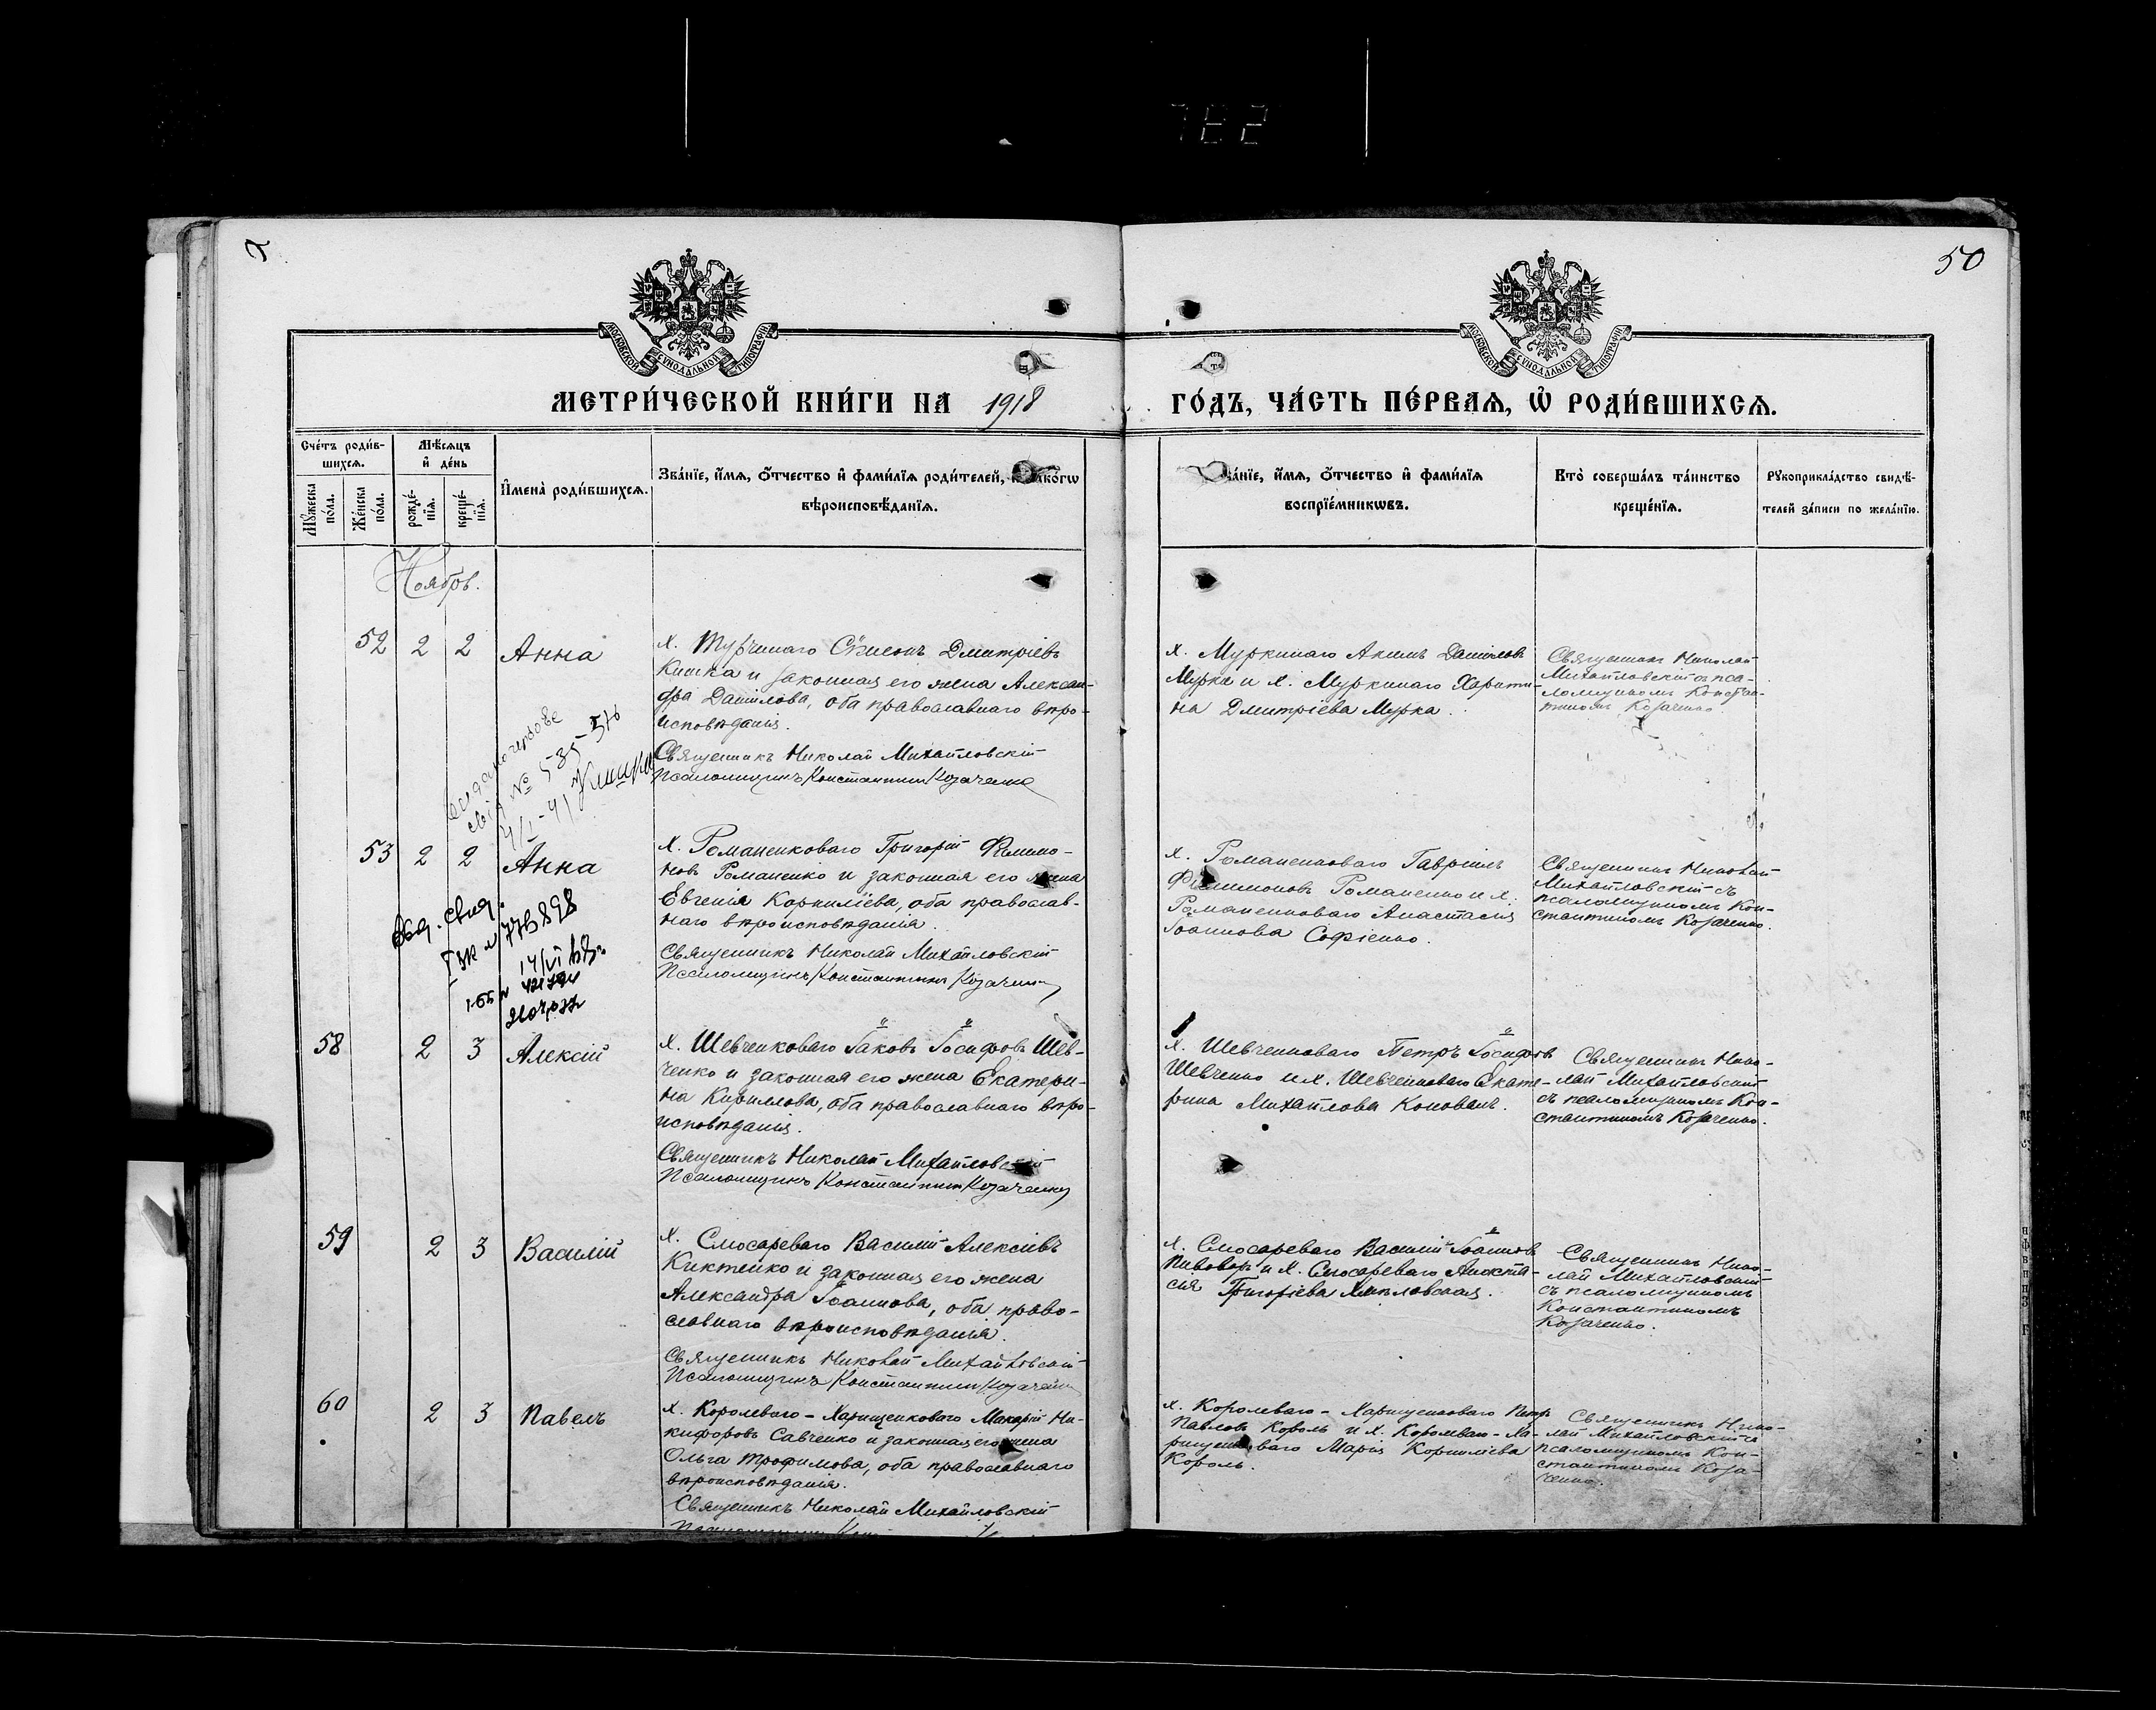 782
50
МОСКОВСКОЙ СѴНОДАЛЬНОЙ ТИПОГРАФІИ
МОСКОВСКОЙ СѴНОДАЛЬНОЙ ТИПОГРАФІИ
МЕТРИ́ЧЕСКОЙ КНИ́ГИ НА 1918
ГО́ДЪ, ЧА́СТЬ ПЕ́РВАѦ, Ѡ҆ РОДИ́ВШИХСѦ.
Сче́тъ роди́в-
шихсѧ.
Мѣ́сѧцъ
и҆ де́нь
Мꙋ́жеска по́ла.
Же́нска по́ла.
рожде́-
нїѧ.
креще́-
нїѧ.
И҆мена̀ роди́вшихсѧ.
Зва́нїе, и҆́мѧ, ѻ҆́тчество и҆ фами́лїѧ роди́телей, и҆ како́гѡ
вѣроисповѣ́данїѧ.
Зва́нїе, и҆́мѧ, ѻ҆́тчество и҆ фами́лїѧ
воспрїе́мникѡвъ.
Кто̀ соверша́лъ та́инство
креще́нїѧ.
Рꙋкоприкла́дство свидѣ́-
телей за́писи по жела́нїю.
Ноябрь.
52 2 2 Анна
х. Турчинаго Сѵмеонъ Дмитріевъ
Кишка и законная его жена Алексан-
дра Данилова, оба православнаго вѣро-
исповѣданія.
Священникъ Николай Михайловскій
Псаломщикъ Константинъ Козаченко
х. Муркинаго Акимъ Даниловъ
Мурка и х. Муркинаго Харити-
на Дмитріева Мурка.
Священникъ Николай
Михайловскій съ пса-
ломщикомъ Констан-
тиномъ Козаченко
53 2 2 Анна
х. Романенковаго Григорій Филимо-
новъ Романенко и законная его жена
Евгенія Корниліева, оба православ-
наго вѣроисповѣданія.
Священникъ Николай Михайловскій
Псаломщикъ Константинъ Козаченко
х. Романенковаго Гавріилъ
Филимоновъ Романенко и х.
Романенковаго Анастасія
Іоаннова Софіенко.
Священникъ Николай
Михайловскій съ
псаломщикомъ Кон-
стантиномъ Козаченко.
58 2 3 Алексій
х. Шевченковаго Іаковъ Іосифовъ Шев-
ченко и законная его жена Екатери-
на Кириллова, оба православнаго вѣро-
исповѣданія.
Священникъ Николай Михайловскій
Псаломщикъ Константинъ Козаченко
х. Шевченковаго Петръ Іосифовъ
Шевченко и х. Шевченковаго Екате-
рина Михайлова Коновалъ.
Священникъ Нико-
лай Михайловскій
съ псаломщикомъ Кон-
стантиномъ Козаченко.
59 2 3 Василій
х. Слюсареваго Василій Алексіевъ
Киктенко и законная его жена
Александра Іоаннова, оба право-
славнаго вѣроисповѣданія.
Священникъ Николай Михайловскій
Псаломщикъ Константинъ Козаченко
х. Слюсареваго Василій Іоанновъ
Пивоваръ и х. Слюсареваго Анаста-
сія Григоріева Хмѣловская.
Священникъ Нико-
лай Михайловскій
съ псаломщикомъ
Константиномъ
Козаченко.
60 2 3 Павелъ
х. Королеваго-Харищенковаго Макарій Ни-
кифоровъ Савченко и законная его жена
Ольга Трофимова, оба православнаго
вѣроисповѣданія.
Священникъ Николай Михайловскій
х. Королеваго-Харищенковаго Петръ
Павловъ Король и х. Королеваго-Ха-
рищенковаго Марія Корниліева
Король.
Священникъ Нико-
лай Михайловскій съ
псаломщикомъ Кон-
стантиномъ Коза-
ченко.